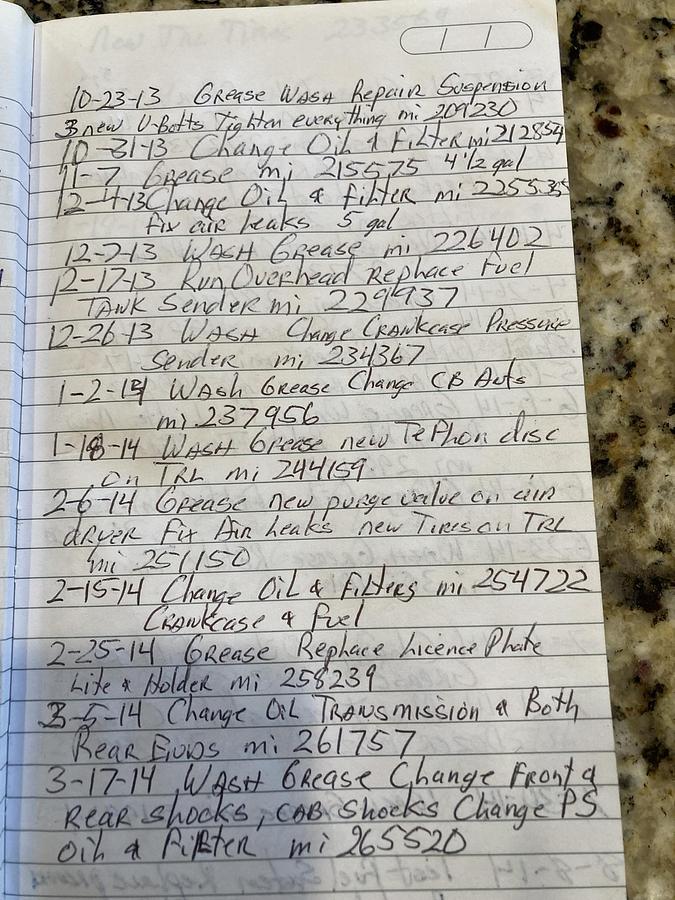 10-23-13 Grease Wash Repair Suspension
3 new U-Bolts Tighten everything mi 209230
10-31-13 Change Oil & Filter mi 212854
11-7 Grease mi 215575 4 1/2 gal
12-4-13 Change Oil & filter mi 225535
fix air leaks 5 gal
12-7-13 Wash Grease mi 226402
12-17-13 Run Overhead Replace Fuel
Tank Sender mi 229937
12-26-13 Wash Change Crankcase Pressure
Sender mi 234367
1-2-14 Wash Grease Change CB Ants
mi 237956
1-18-14 Wash Grease new Teflon disc
on TRL mi 244159
2-6-14 Grease new purge valve on air
dryer Fix Air Leaks new Tires on TRL
mi 251150
2-15-14 Change Oil & Filters mi 254722
Crankcase & fuel
2-25-14 Grease Replace Licence Plate
Lite & Holder mi 258239
3-5-14 Change Oil Transmission & Both
Rear Ends mi 261757
3-17-14 Wash Grease Change Front &
Rear Shocks, CAB Shocks Change PS
Oil & Filter mi 265520